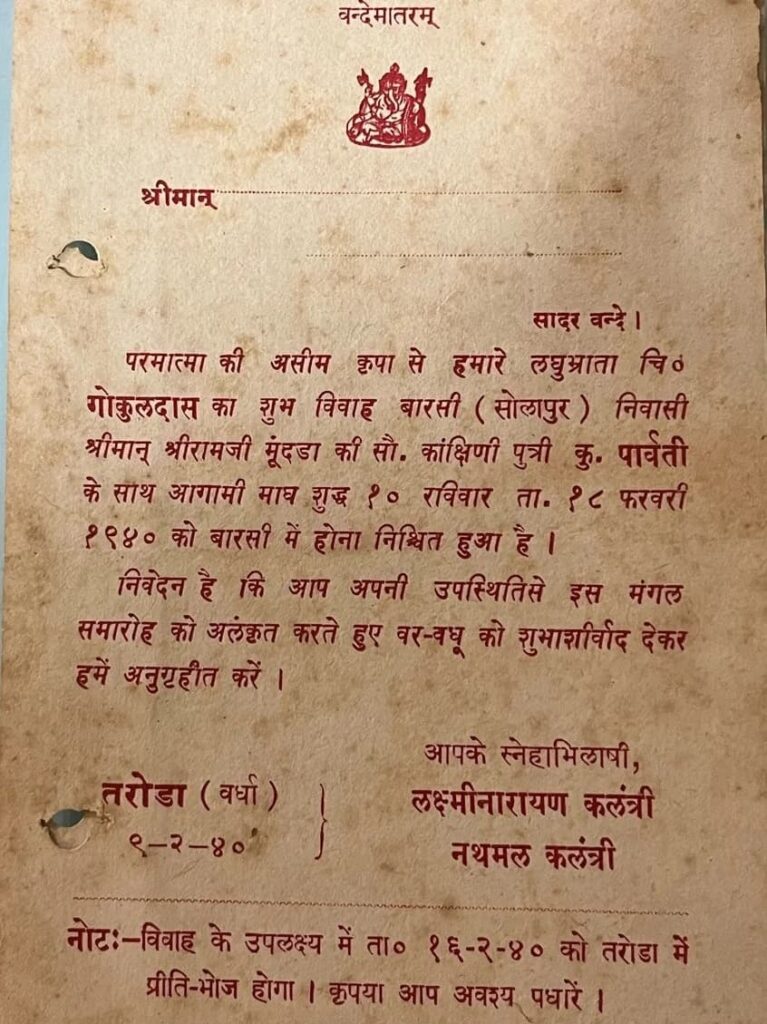 वन्देमातरम्
श्रीमान्
सादर वन्दे।
परमात्मा की असीम कृपा से हमारे लघुभ्राता चि०
गोकुलदास का शुभ विवाह बारसी ( सोलापुर ) निवासी
श्रीमान् श्रीरामजी मूंदडा की सौ. कांक्षिणी पुत्री कु. पार्वती
के साथ आगामी माघ शुद्ध १० रविवार ता. १८ फरवरी
१९४० को बारसी में होना निश्चित हुआ है ।
निवेदन है कि आप अपनी उपस्थितिसे इस मंगल
समारोह को अलंकृत करते हुए वर-वधू को शुभाशीर्वाद देकर
हमें अनुगृहीत करें ।
आपके स्नेहाभिलाषी,
तरोडा ( वर्धा ) लक्ष्मीनारायण कलंत्री
९-२-४० नथमल कलंत्री
नोटः-विवाह के उपलक्ष्य में ता० १६-२-४० को तरोडा में
प्रीति-भोज होगा । कृपया आप अवश्य पधारें ।